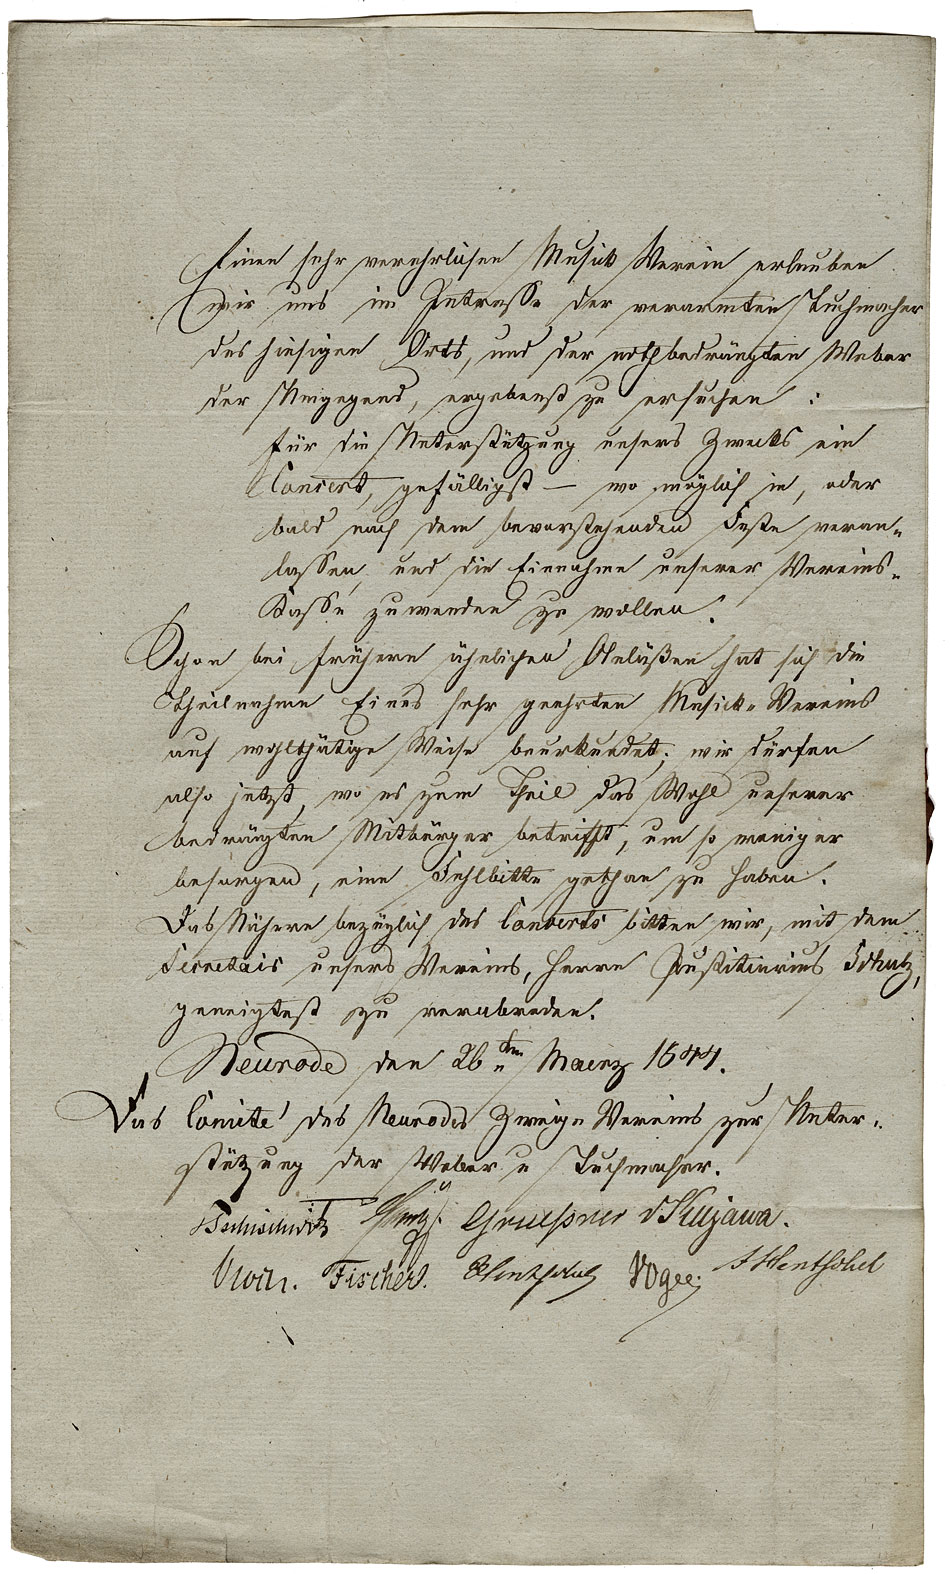 Einen sehr verehrlichen Musick Verein erlauben
wir uns im Intresse der verarmten Tuchmacher
des hiesigen Orts, und der nothbedrängten Weber
der Umgegend, ergebenst zu ersuchen :
für die Unterstützung unsers Zwecks ein
Concert, gefälligst – wo möglich in, oder
bald nach dem bevorstehenden Feste veran-
lassen, und die Einnahme unserer Vereins-
Kasse zuwenden zu wollen.
Schon bei frühern ähnlichen Anläßen hat sich die
Theilnahme Eines sehr geehrten Musick-Vereins
auf wohlthätige Weise beurkundet; wir dürfen
also jetzt, wo es zum Theil das Wohl unserer
bedrängten Mitbürger betrifft, um so weniger
besorgen, eine Fehlbitte gethan zu haben.
Das Nähere bezüglich des Concerts bitten wir, mit dem
Secretair unsers Vereins, Herrn Justitiarius Schulz,
geneigtest zu verabreden.
Neurode den 26ten Maerz 1844.
Das Comité des Neuroder Zweig-Vereins zur Unter-
stützung der Weber u Tuchmacher.
Tschischwitz Gruessner vKujawa.
Fischer. Vogel. Hentschel